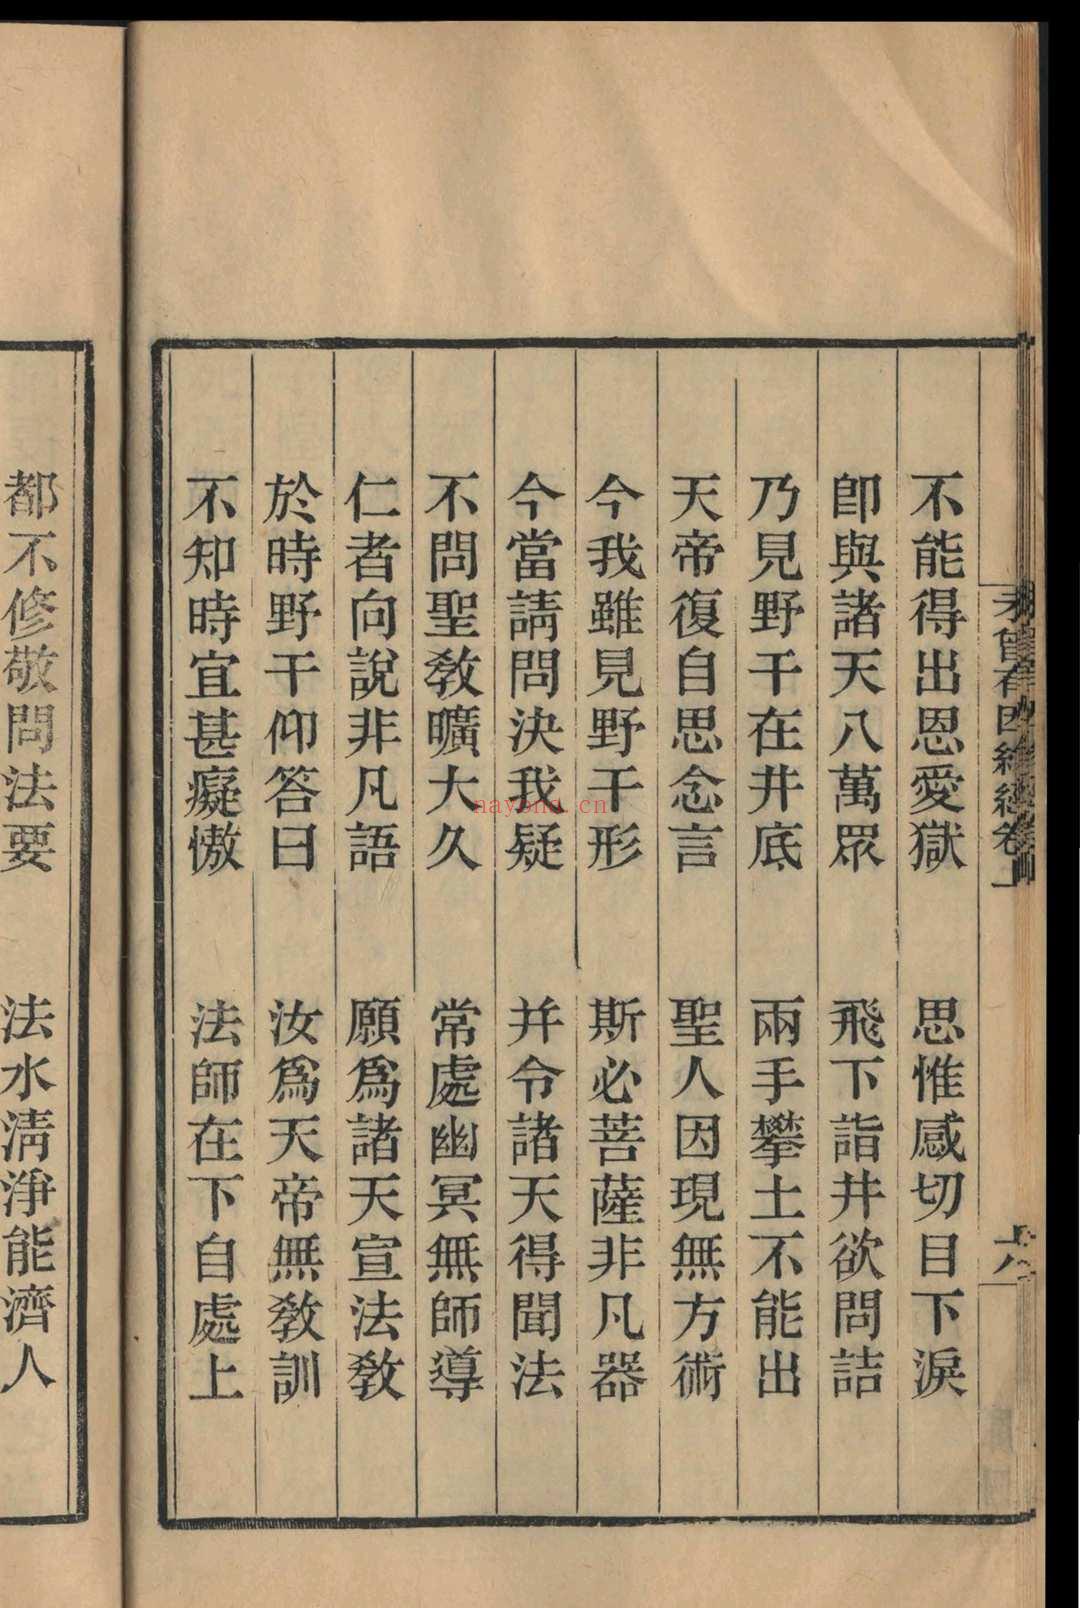 未曾有因緣經卷上
六
不能得出恩愛獄　思惟感切目下淚
卽與諸天八萬眾　飛下詣井欲問詰
乃見野干在井底　兩手攀土不能出
天帝復自思念言　聖人因現無方術
今我雖見野干形　斯必菩薩非凡器
今當請問決我疑　并令諸天得聞法
不問聖教曠大久　常處幽冥無師導
仁者向說非凡語　願爲諸天宣法教
於時野干仰答曰　汝爲天帝無教訓
不知時宜甚癡慠　法師在下自處上
都不修敬問法要　法水淸淨能濟人
nayona.cn